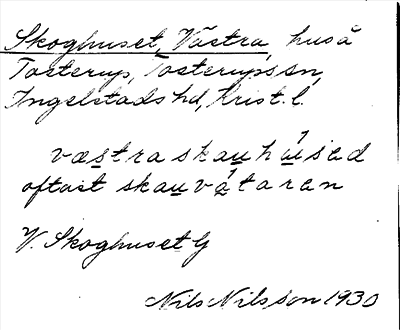 Skoghuset, Västra, huså
Tosterup, Tosterups sn,
Ingelstads hd, Krist. l.
væstra skauhúised
oftast skauvátaren
V. Skoghuset G
Nils Nilsson 1930